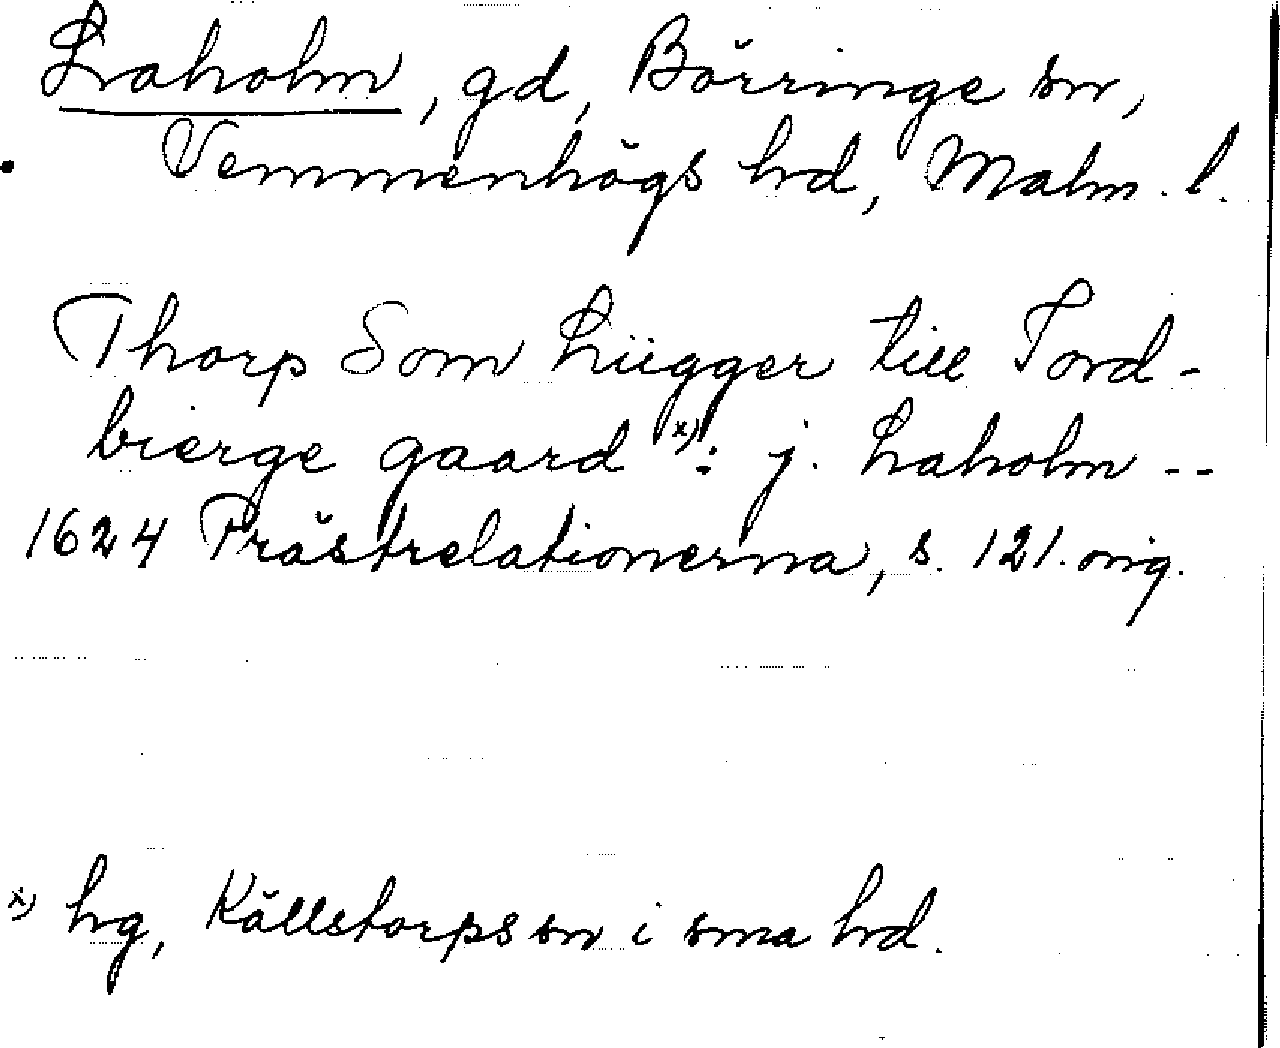 Laholm, gd, Börringe sn,
Vemmenhögs hd, Malm. l.
Thorp Som Liigger till Tord-
bierge gaard x): j. Laholm --
1624 Prästrelationerna, s. 121. orig.
x) hg, Källstorps sn i sma hd.